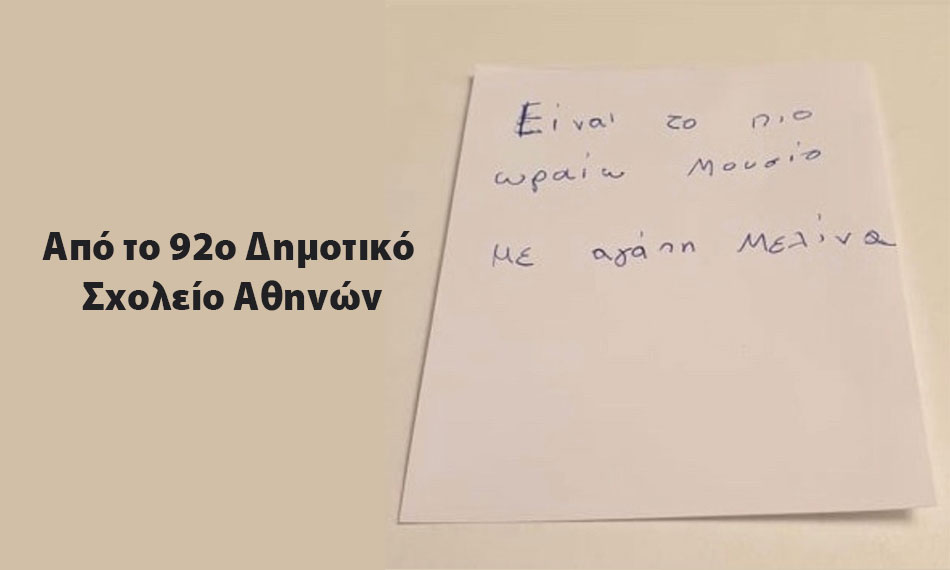 Από το 92ο Δημοτικό
Σχολείο Αθηνών
Είναι το πιο
ωραίω Μουσίο
με αγάπη Μελίνα